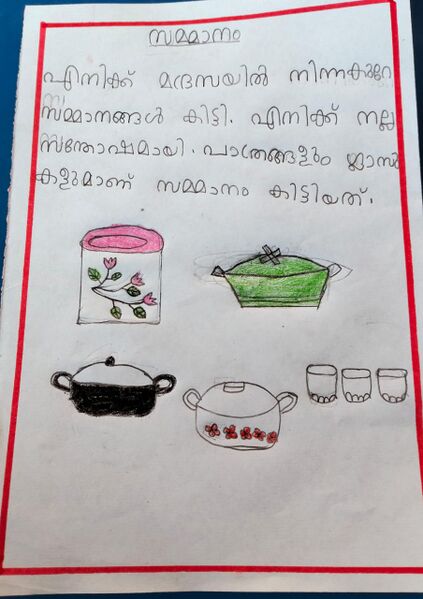 സമ്മാനം
എനിക്ക് മദ്രസയിൽ നിന്ന് കുറേ
സമ്മാനങ്ങൾ കിട്ടി. എനിക്ക് നല്ല
സന്തോഷമായി. പാത്രങ്ങളും ഗ്ലാസു
കളുമാണ് സമ്മാനം കിട്ടിയത്.